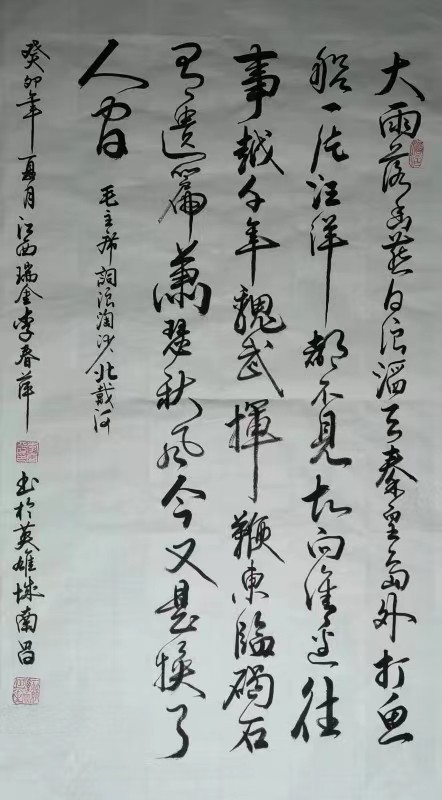 大雨落幽燕白浪滔天秦皇島外打魚
船一片汪洋都不見知向誰邊往
事越千年魏武揮鞭東臨碣石
有遺篇蕭瑟秋風今又是換了
人间
毛主席詞浪淘沙北戴河
癸卯年夏月江西瑞金李春萍
书於英雄城南昌